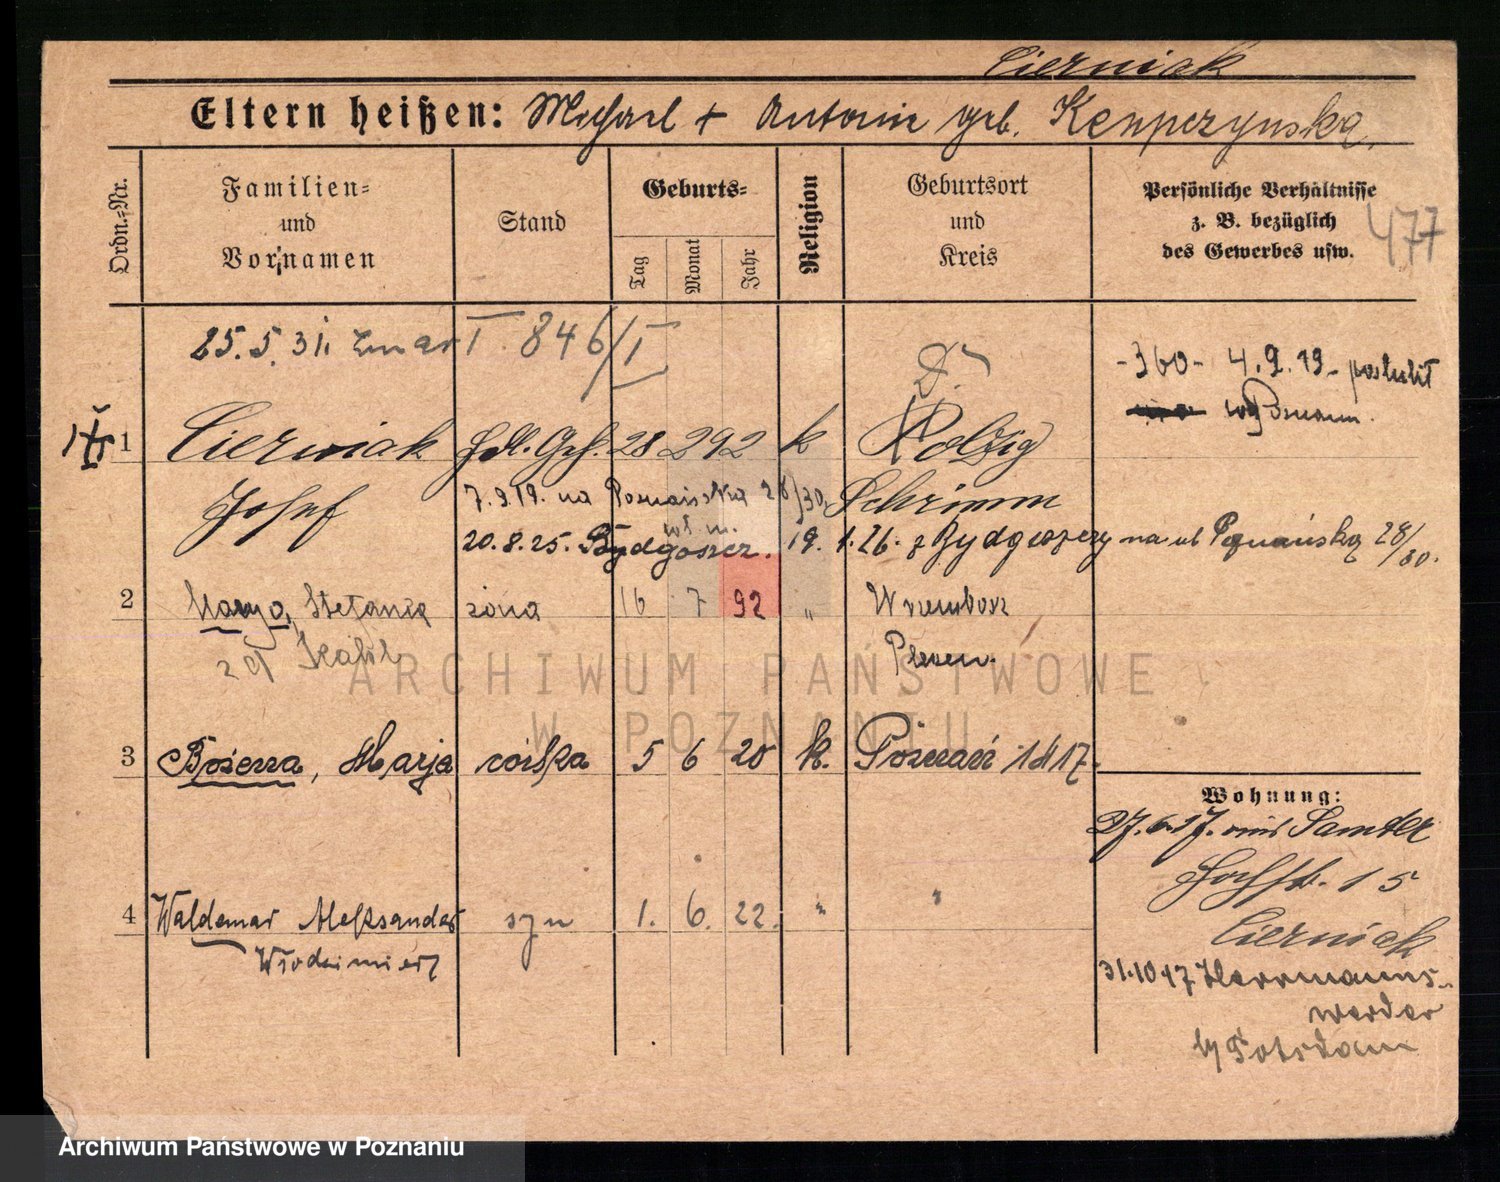 Cierniak
Eltern heißen: Michael + Antonie geb. Kempczynska.
Ordn.=Nr.
Familien=
und
Vornamen
Stand
Geburts=
Tag
Monat
Jahr
Religion
Geburtsort
und
Kreis
Persönliche Verhältnisse
z. B. bezüglich
des Gewerbes usw.
477
25.5.31. zmar I 846/I
-360- 4.9.19- poślubił
w Poznaniu.
1 Cierniak Hdl. Geh. 28 2 92 k Polzig
Josef Schrimm
7.9.19. na Poznańska 28/30
20.8.25. Bydgoszcz. 19.1.26. z Bydgoszczy na ul Poznańską 28/30.
2 Marja, Stefania żona 16 7 92 "
Pleschen.
3 Bożena, Marja córka 5 6 20 k. Poznań 1417.
Wohnung:
27.6.17. Samter
15
Cierniak
4 Waldemar Aleksander syn 1. 6. 22. " "
Włodzimierz
31.10.17 Herrmanns-
werder
b/Potsdam
ARCHIWUM PAŃSTWOWE
W POZNANIU
Archiwum Państwowe w Poznaniu